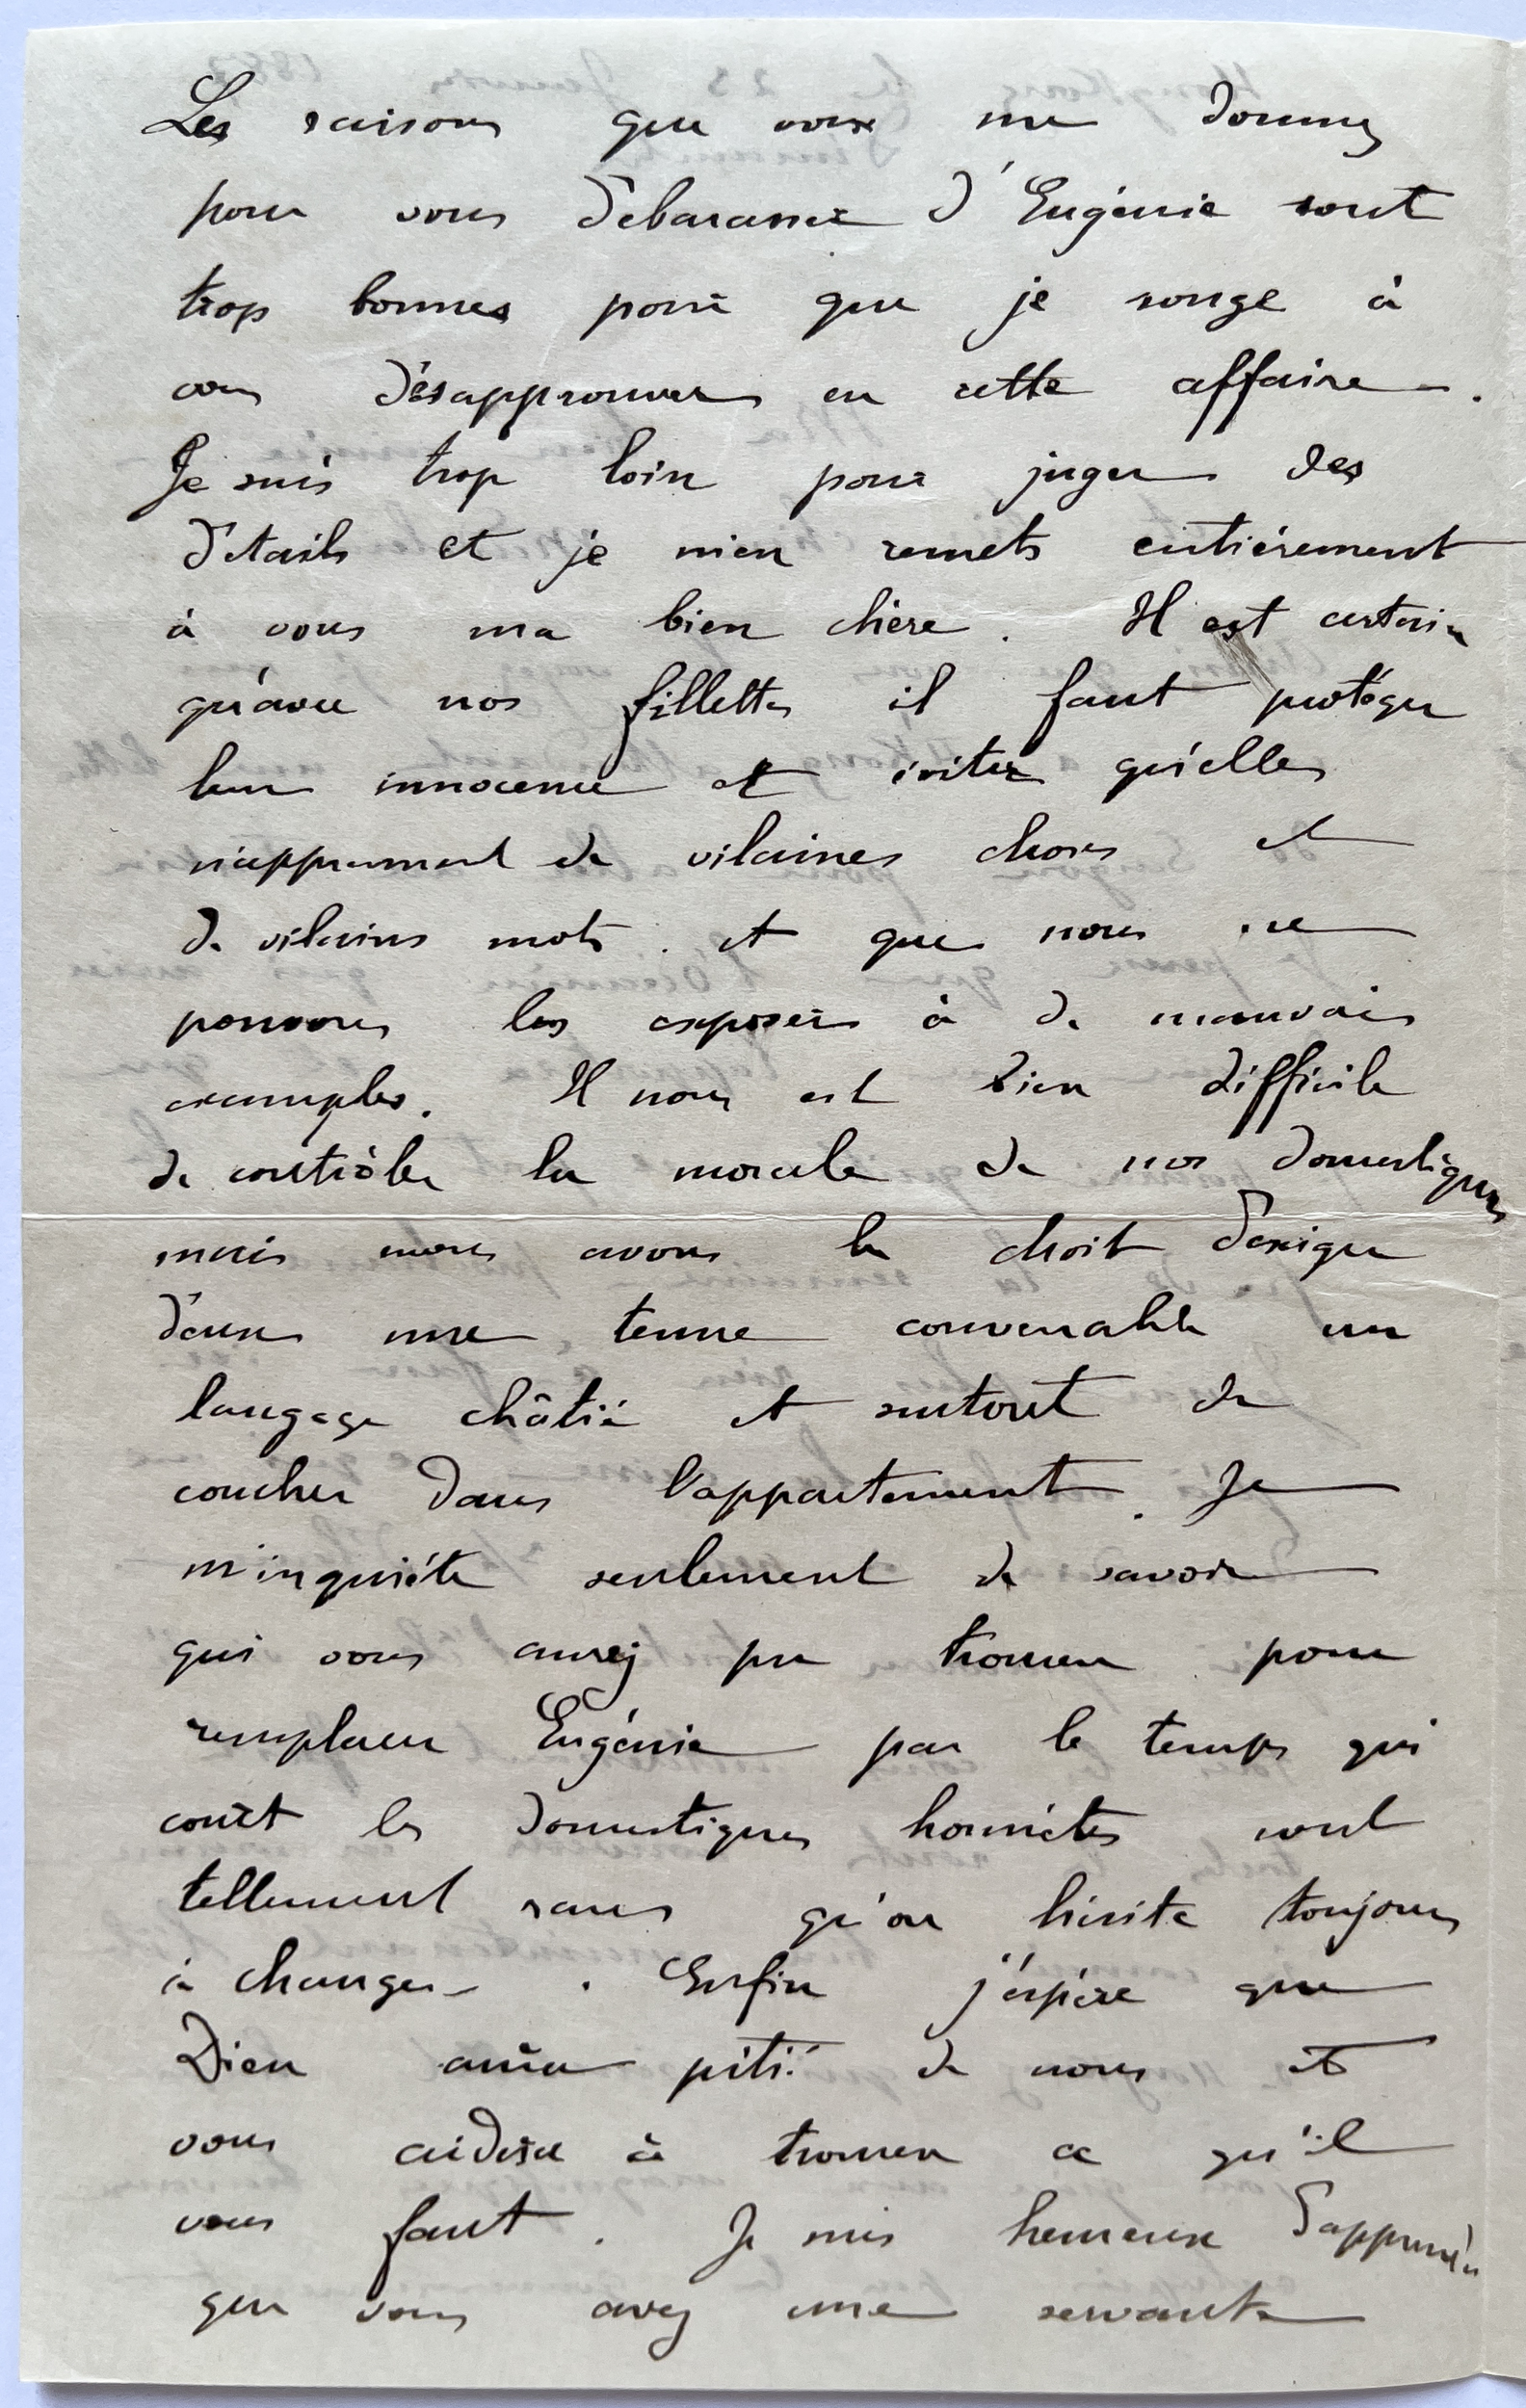 Les raisons que vous me donnez
pour vous débarasser d'Eugénie sont
trop bonnes pour que je songe à
vous désapprouver en cette affaire.
Je suis trop loin pour juger des
détails et je m'en remets entièrement
à vous ma bien chère. Il est certain
qu'avec nos fillettes il faut protéger
leur innocence et éviter qu'elles
n'apprennent de vilaines choses et
de vilains mots. et que nous ne
pouvons les exposer à de mauvais
exemples. Il nous est bien difficile
de contrôler la morale de nos domestiques
mais nous avons le droit d'exiger
d'eux une tenue convenable un
langage châtié et surtout de
coucher dans l'appartement. Je
m'inquiète seulement de savoir
qui vous aurez pu trouver pour
remplacer Eugénie par le temps qui
court les domestiques honnêtes sont
tellement rares qu'on hésite toujours
à changer. Enfin j'espère que
Dieu aura pitié de nous et
vous aidera à trouver ce qu'il
vous faut. Je suis heureux d'apprendre
que vous avez une servante